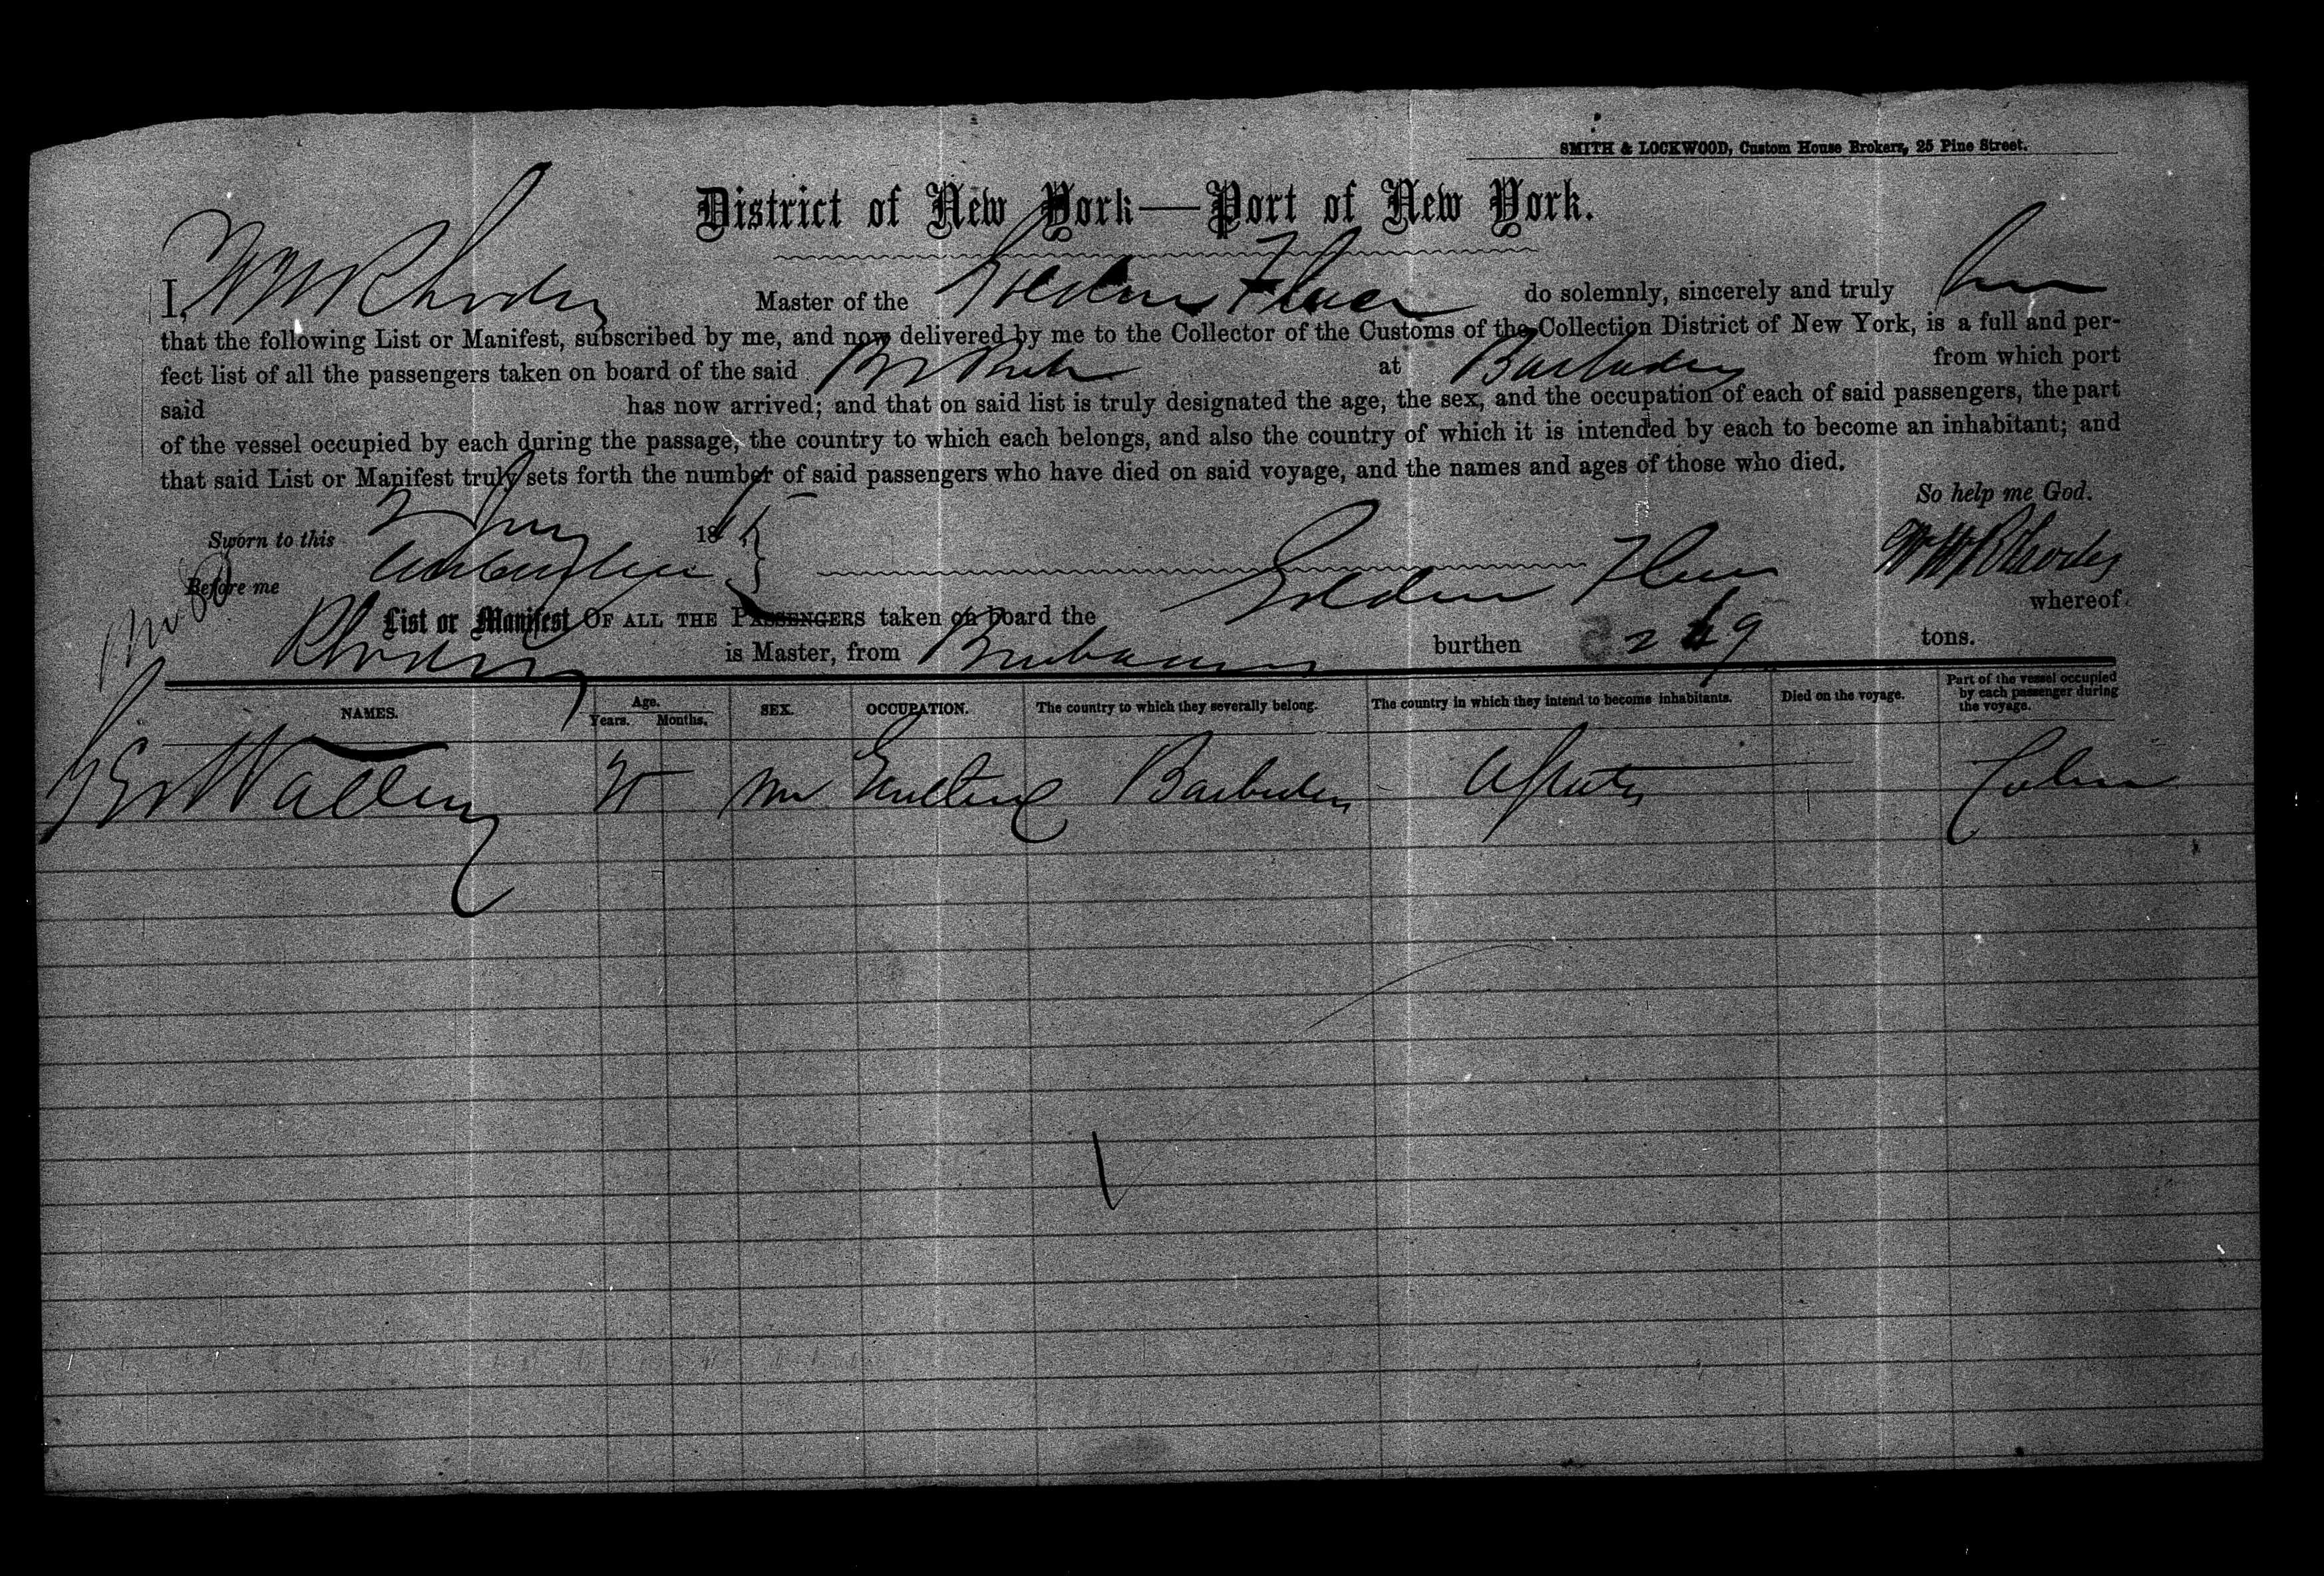 SMITH & LOCKWOOD, Custom House Brokers, 25 Pine Street.
District of New York—Port of New York.
I, W W Rhodes Master of the Golden Fleece do solemnly, sincerely and truly
that the following List or Manifest, subscribed by me, and now delivered by me to the Collector of the Customs of the Collection District of New York, is a full and per-
fect list of all the passengers taken on board of the said Br at Barbados from which port
said has now arrived; and that on said list is truly designated the age, the sex, and the occupation of each of said passengers, the part
of the vessel occupied by each during the passage, the country to which each belongs, and also the country of which it is intended by each to become an inhabitant; and
that said List or Manifest truly sets forth the number of said passengers who have died on said voyage, and the names and ages of those who died.
So help me God.
Sworn to this 18
Before me
W W Rhodes
List or Manifest OF ALL THE PASSENGERS taken on board the Golden Fleece whereof
Rhodes is Master, from burthen tons.
NAMES. Age. Years. Months. SEX. OCCUPATION. The country to which they severally belong. The country in which they intend to become inhabitants. Died on the voyage. Part of the vessel occupied by each passenger during the voyage.
m Barbados U States Cabin